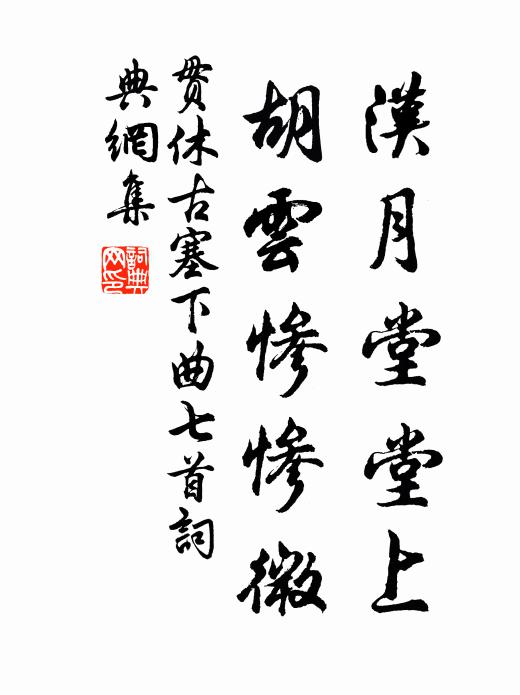 漢月堂堂上
胡雲慘慘微
貫休古塞下曲七首詞
典網集
詞典
网印